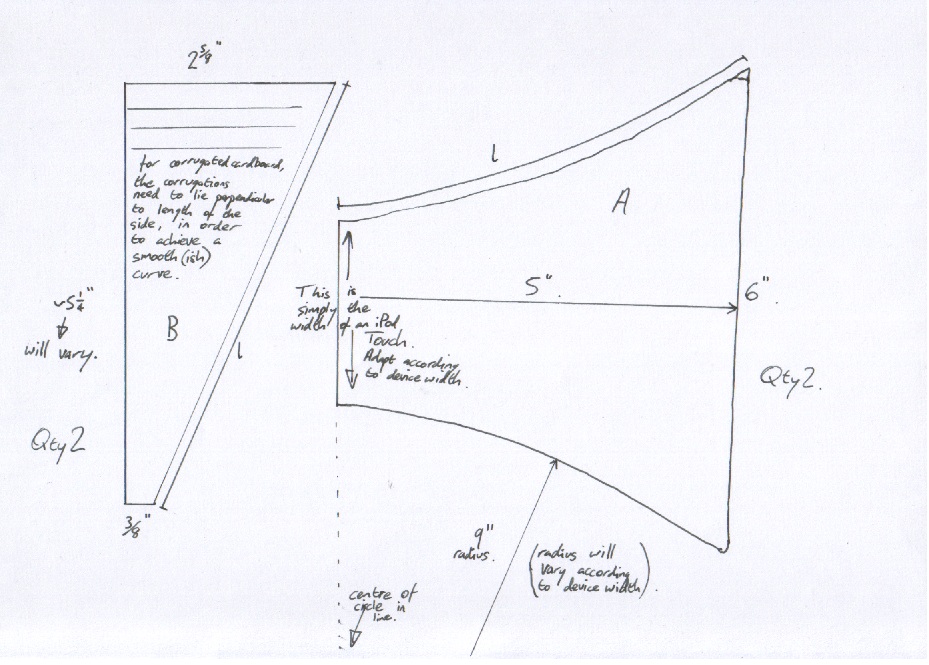 2 5/8"
for corrugated cardboard,
the corrugations
need to lie perpendicular
to length of the
side, in order
to achieve a
smooth(ish)
curve.
~5 1/4"
will vary.
B
l
Qty 2
3/8"
l
A
5".
6".
This is
simply the
width of an iPod
Touch.
Adapt according
to device width.
Qty 2.
9"
radius.
(radius will
vary according
to device width).
centre of
circle in
line.